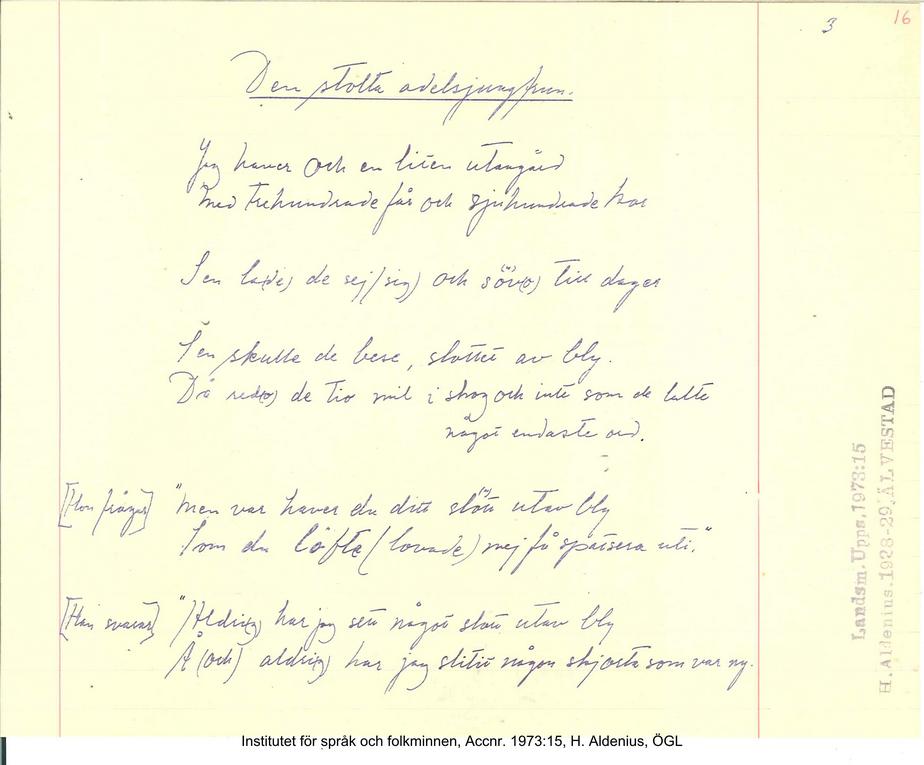 16
3
Den stolta adelsjungfrun.
Jag haver och en liten utangård
Med trehundrade får och sjuhundrade kor
Sen la(de) de sej/sig) och söv(o) till dager
Sen skulle de bese, slottet av bly.
Då red(o) de tio mil i skog och inte som de talte
något endaste ord.
[Hon frågar] "Men var haver du ditt slott utav bly
Som du löfte (lovade) mej få spatsera uti."
[Han svarar] "Aldri(g) har jag sett något slott utav bly
Å (och) aldri(g) har jag slitit någon skjorta som var ny.
Landsm.Upps.1973:15
H.Aldenius.1928-29.ÄLVESTAD
Institutet för språk och folkminnen, Accnr. 1973:15, H. Aldenius, ÖGL